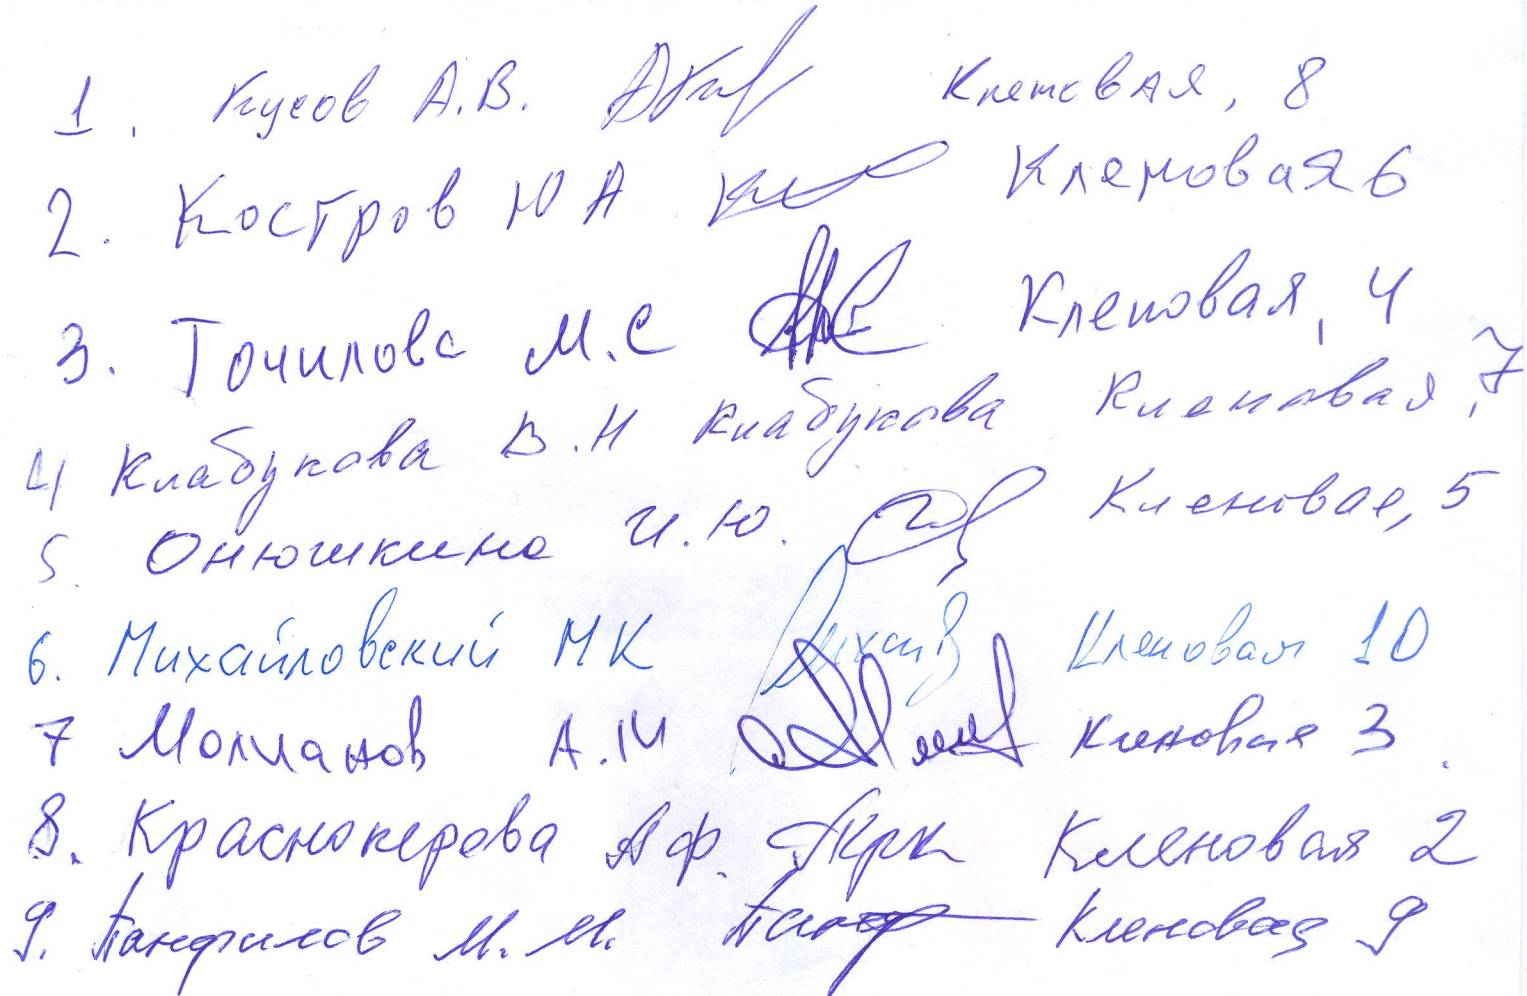 1. Кусов А.В. Кленовая, 8
2. Костров Ю А Кленовая 6
3. Точилова М.С Кленовая, 4
4 Клабукова В.Н Клабукова Кленовая, 7
5. Онюшкина И.Ю. Кленовая, 5
6. Михайловский МК Кленовая 10
7 Молчанов А.М Кленовая 3.
8. Красноперова А Ф. Кленовая 2
9. Панфилов М.М. Кленовая 9